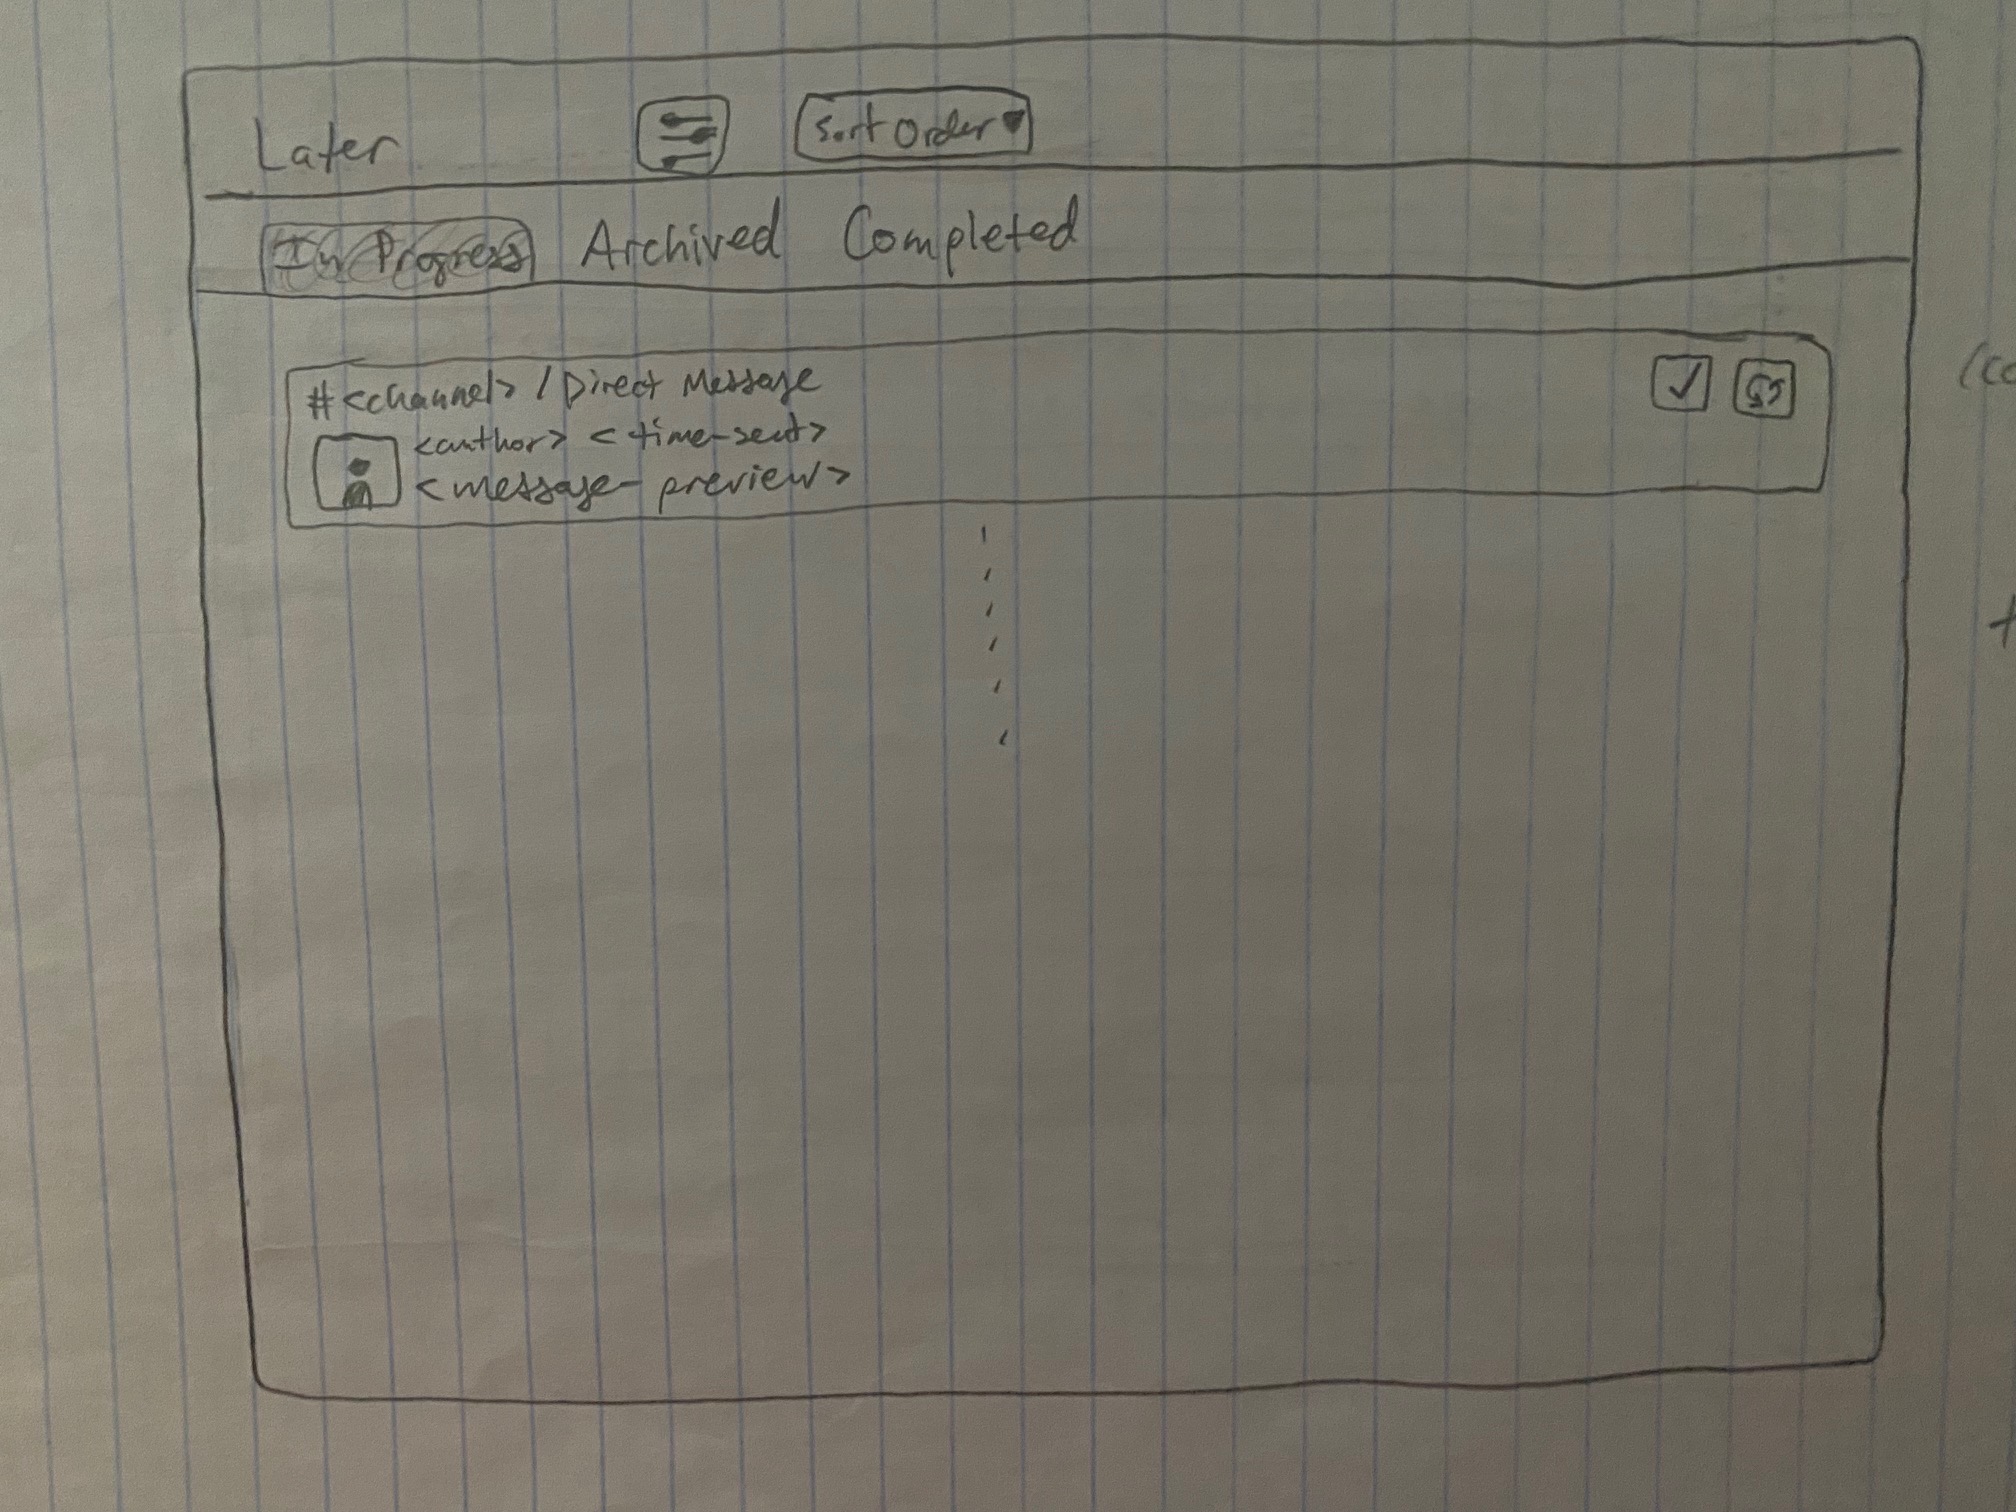 Later
Sort Order
In Progress Archived Completed
#<channel> / Direct Message
<author> <time-sent>
<message-preview>